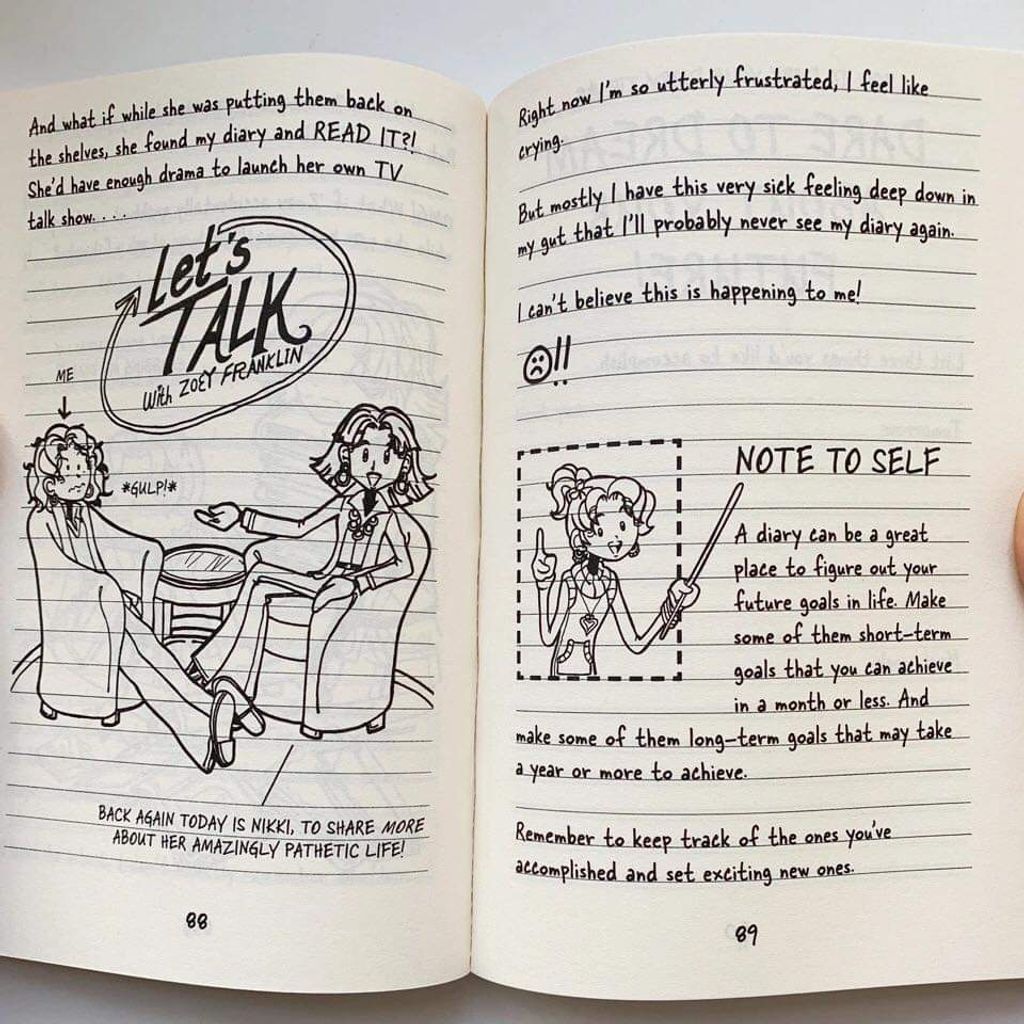 And what if while she was putting them back on
the shelves, she found my diary and READ IT?!
She'd have enough drama to launch her own TV
talk show. . . .
Let's
TALK
With ZOEY FRANKLIN
ME
*GULP!*
BACK AGAIN TODAY IS NIKKI, TO SHARE MORE
ABOUT HER AMAZINGLY PATHETIC LIFE!
88
Right now I'm so utterly frustrated, I feel like
crying.
But mostly I have this very sick feeling deep down in
my gut that I'll probably never see my diary again.
I can't believe this is happening to me!
☹!!
NOTE TO SELF
A diary can be a great
place to figure out your
future goals in life. Make
some of them short-term
goals that you can achieve
in a month or less. And
make some of them long-term goals that may take
a year or more to achieve.
Remember to keep track of the ones you've
accomplished and set exciting new ones.
89